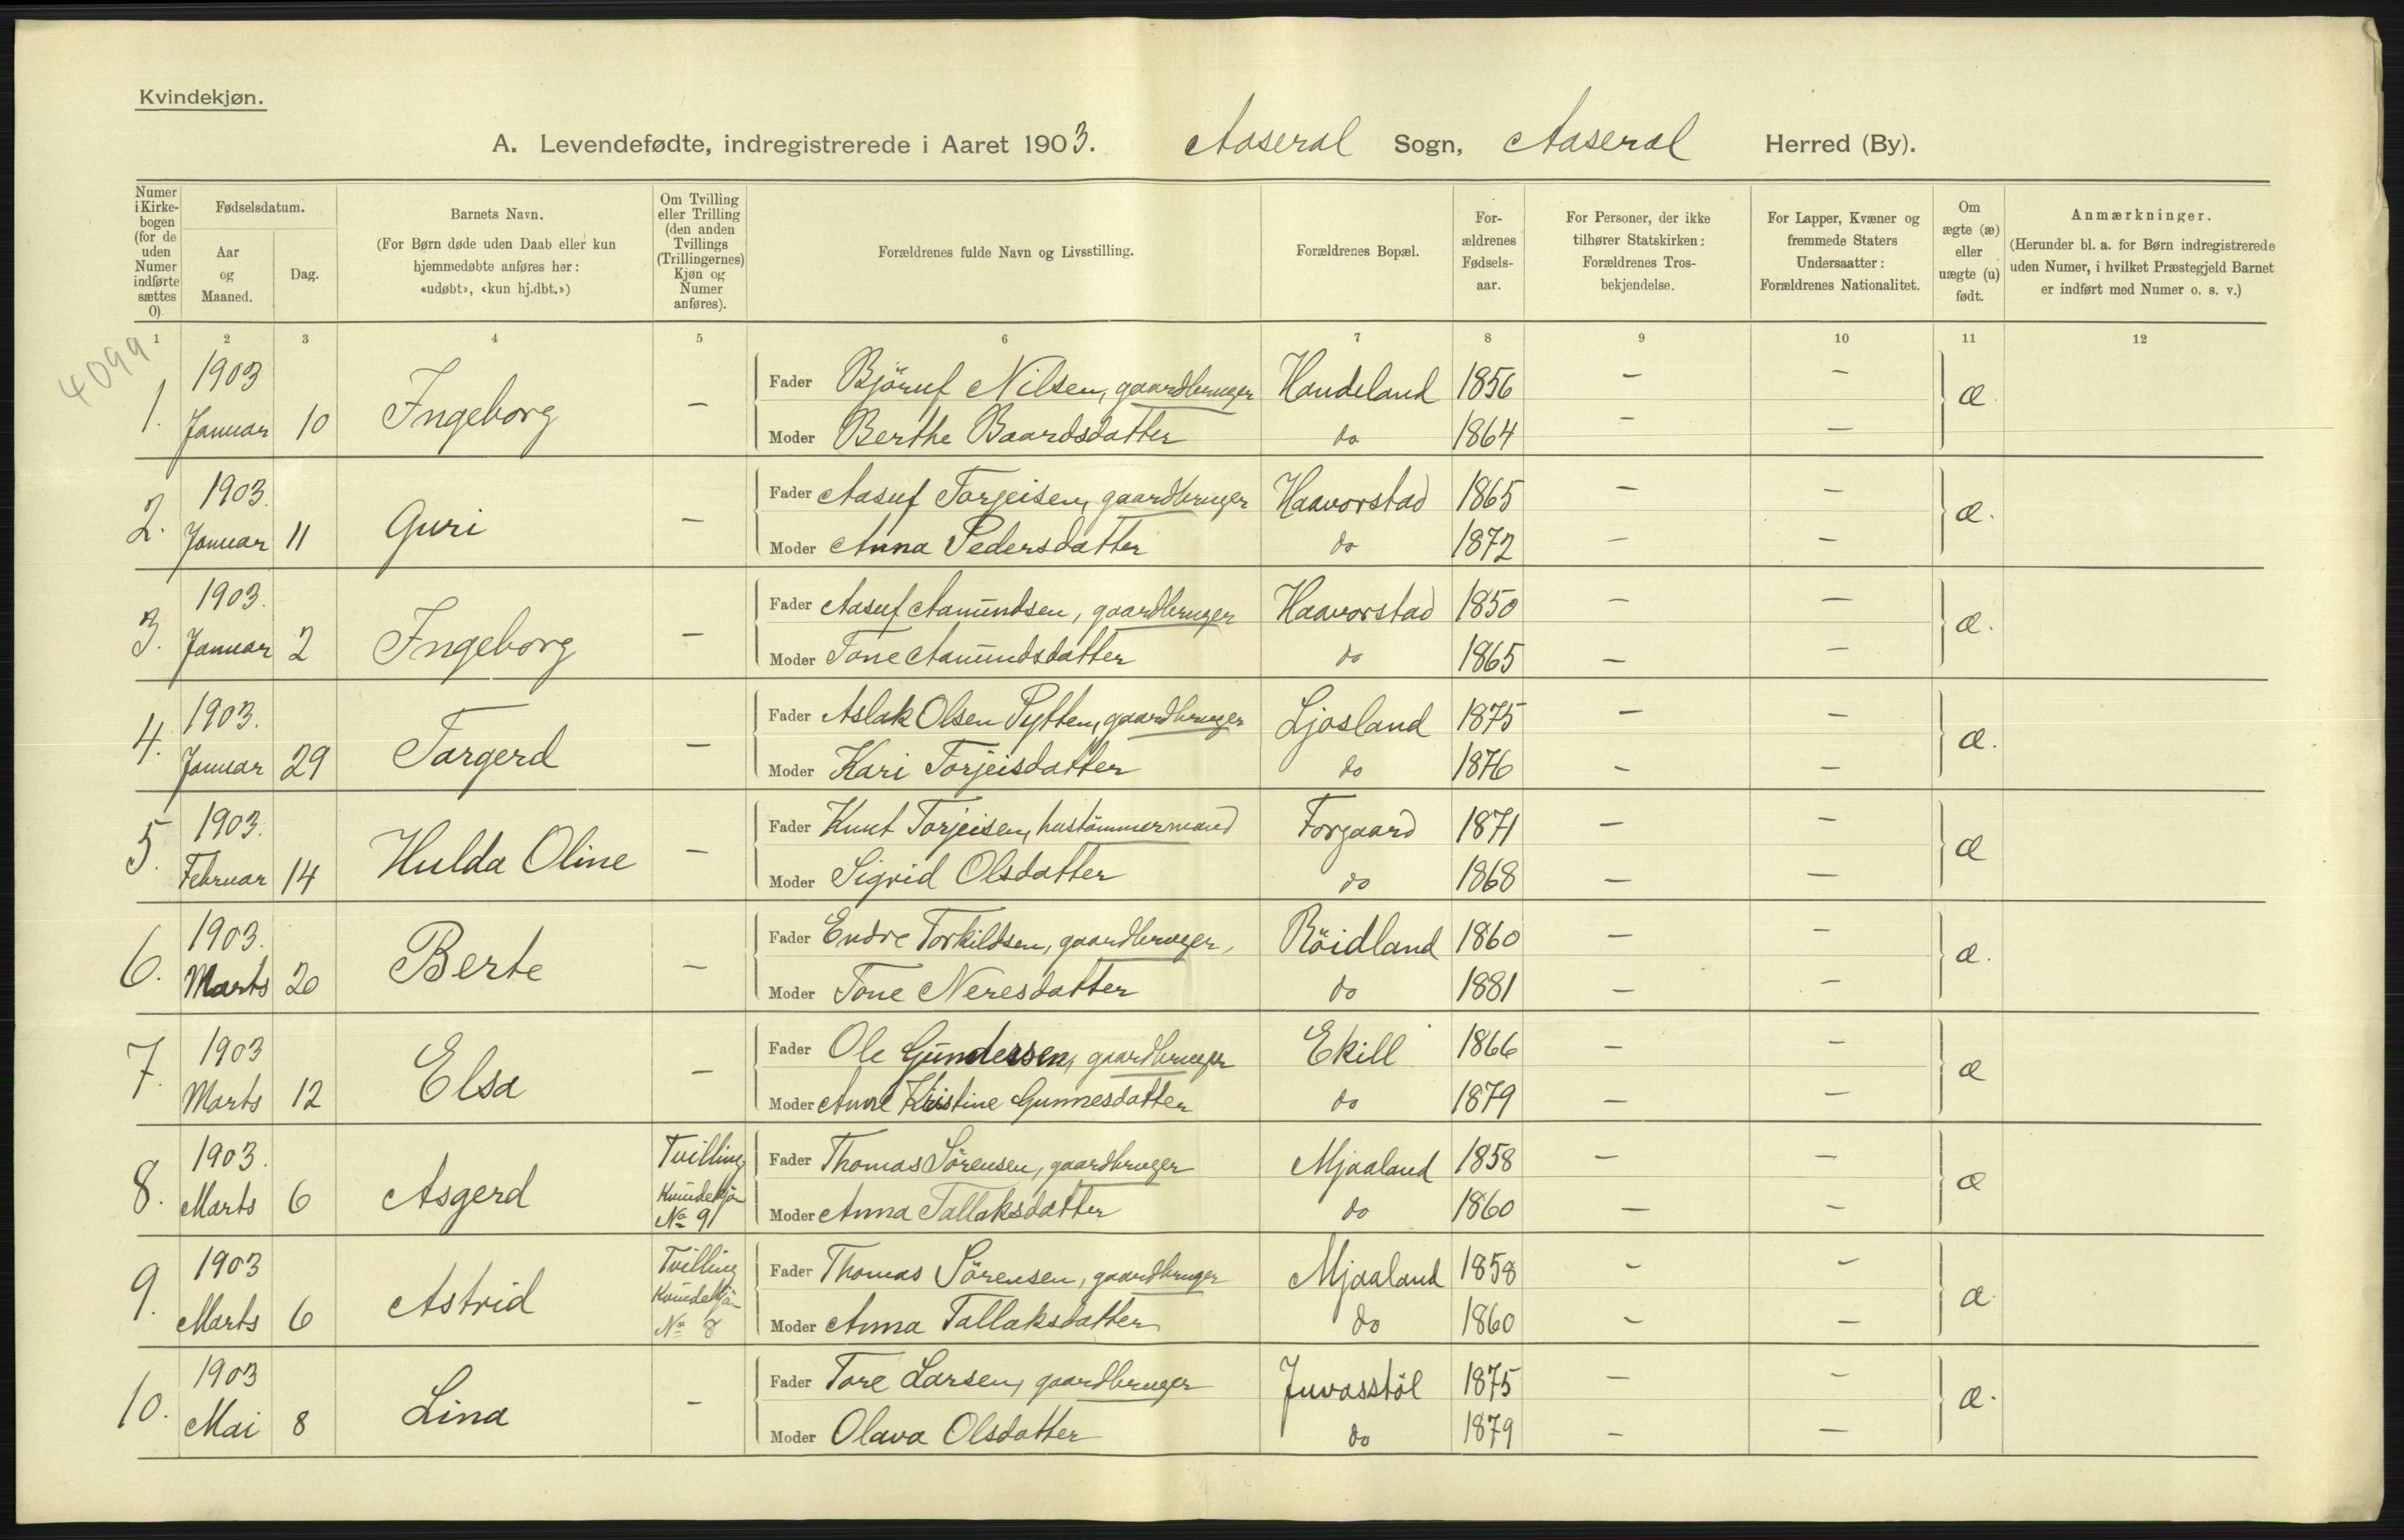 Kvindekjøn.
A. Levendefødte, indregistrerede i Aaret 1903. Aaseral Sogn, Aaseral Herred (By).
Numer i Kirkebogen (for de uden Numer indførte sættes 0).
Fødselsdatum.
Aar og Maaned.
Dag.
Barnets Navn.
(For Børn døde uden Daab eller kun hjemmedøbte anføres her: «udøbt», «kun hj.dbt.»)
Om Tvilling eller Trilling (den anden Tvillings (Trillingernes) Kjøn og Numer anføres).
Forældrenes fulde Navn og Livsstilling.
Forældrenes Bopæl.
Forældrenes Fødselsaar.
For Personer, der ikke tilhører Statskirken: Forældrenes Trosbekjendelse.
For Lapper, Kvæner og fremmede Staters Undersaatter: Forældrenes Nationalitet.
Om ægte (æ) eller uægte (u) født.
Anmærkninger.
(Herunder bl. a. for Børn indregistrerede uden Numer, i hvilket Præstegjeld Barnet er indført med Numer o. s. v.)
1 2 3 4 5 6 7 8 9 10 11 12
4099
1. 1903 Januar 10 Ingeborg –
Fader Björuf Nilsen, gaardbruger Handeland 1856 – – æ.
Moder Berthe Baardsdatter do 1864 – –
2. 1903. Januar 11 Guri –
Fader Aasuf Torjeisen, gaardbruger Haavorstad 1865 – – æ.
Moder Anna Pedersdatter do 1872 – –
3. 1903. Januar 2 Ingeborg –
Fader Aasuf Aamundsen, gaardbruger Haavorstad 1850 – – æ.
Moder Tone Aamundsdatter do 1865 – –
4. 1903. Januar 29 Targerd –
Fader Aslak Olsen Pytten, gaardbruger Ljosland 1875 – – æ.
Moder Kari Torjeisdatter do 1876 – –
5. 1903. Februar 14 Hulda Oline –
Fader Knut Torjeisen, hustömmermand Forgaard 1871 – – æ
Moder Sigrid Olsdatter do 1868 – –
6. 1903. Marts 20 Berte –
Fader Endre Torkildsen, gaardbruger, Röidland 1860 – – æ.
Moder Tone Neresdatter do 1881 – –
7. 1903 Marts 12 Elsa –
Fader Ole Gundersen, gaardbruger Ekill 1866 – – æ
Moder Anne Kristine Gunnesdatter do 1879 – –
8. 1903. Marts 6 Asgerd Tvilling Kvindekjön No 9
Fader Thomas Sörensen, gaardbruger Mjaaland 1858 – – æ
Moder Anna Tallaksdatter do 1860 – –
9. 1903 Marts 6 Astrid Tvilling Kvindekjön No 8
Fader Thomas Sörensen, gaardbruger Mjaaland 1858 – – æ.
Moder Anna Tallaksdatter do 1860 – –
10. 1903 Mai 8 Lina –
Fader Tore Larsen, gaardbruger Juvasstöl 1875 – – æ.
Moder Olava Olsdatter do 1879 – –